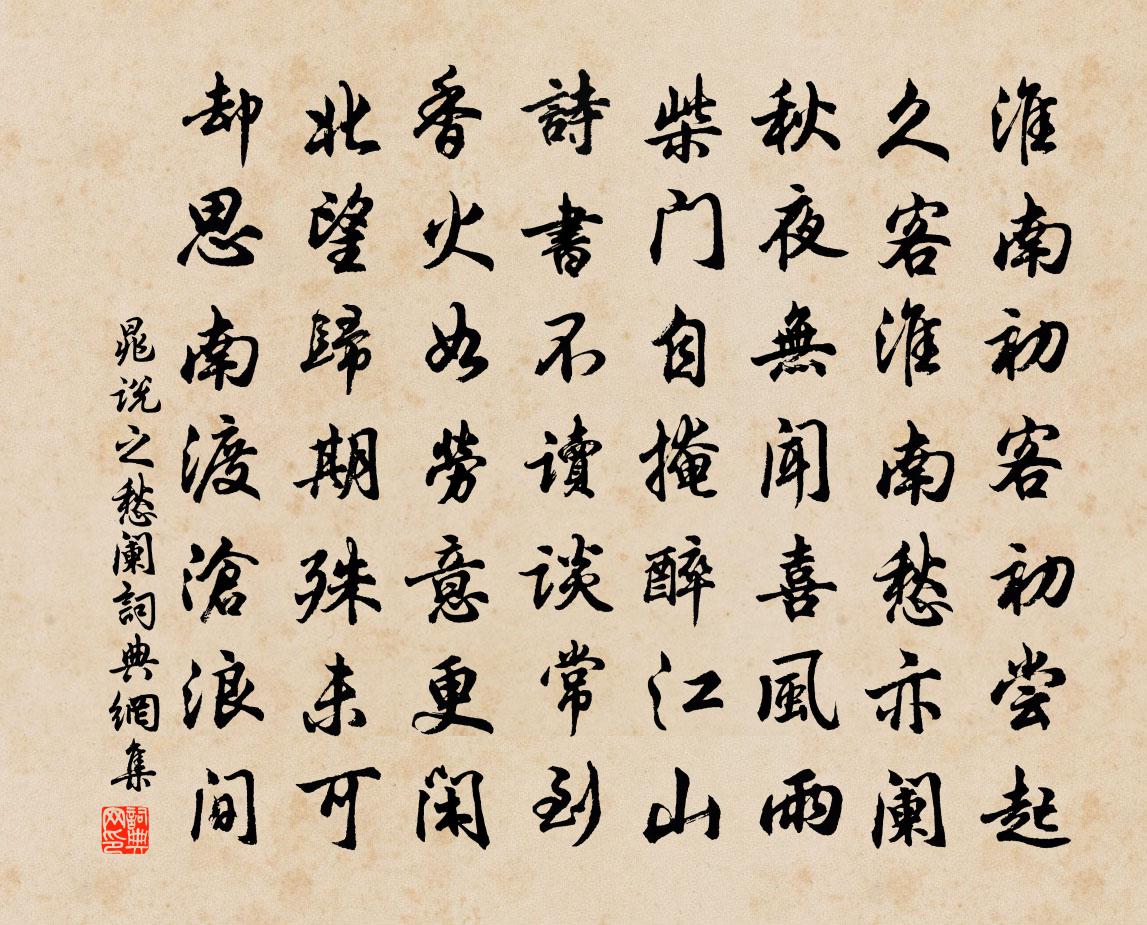 淮南初客初尝起
久客淮南愁亦阑
秋夜無闻喜風雨
柴门自掩醉江山
詩書不讀談常到
香火如勞意更闲
北望歸期殊未可
却思南渡滄浪间
晁说之愁阑詞典網集
詞典网印